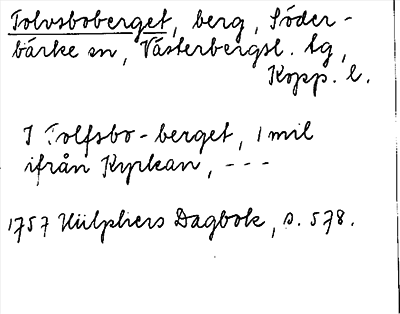 Tolvsboberget, berg, Söder-
bärke sn, Västerbergsl. tg,
Kopp. l.
I Tolfsbo-berget, 1 mil
ifrån Kyrkan, ---
1757 Hülphers Dagbok, s. 578.